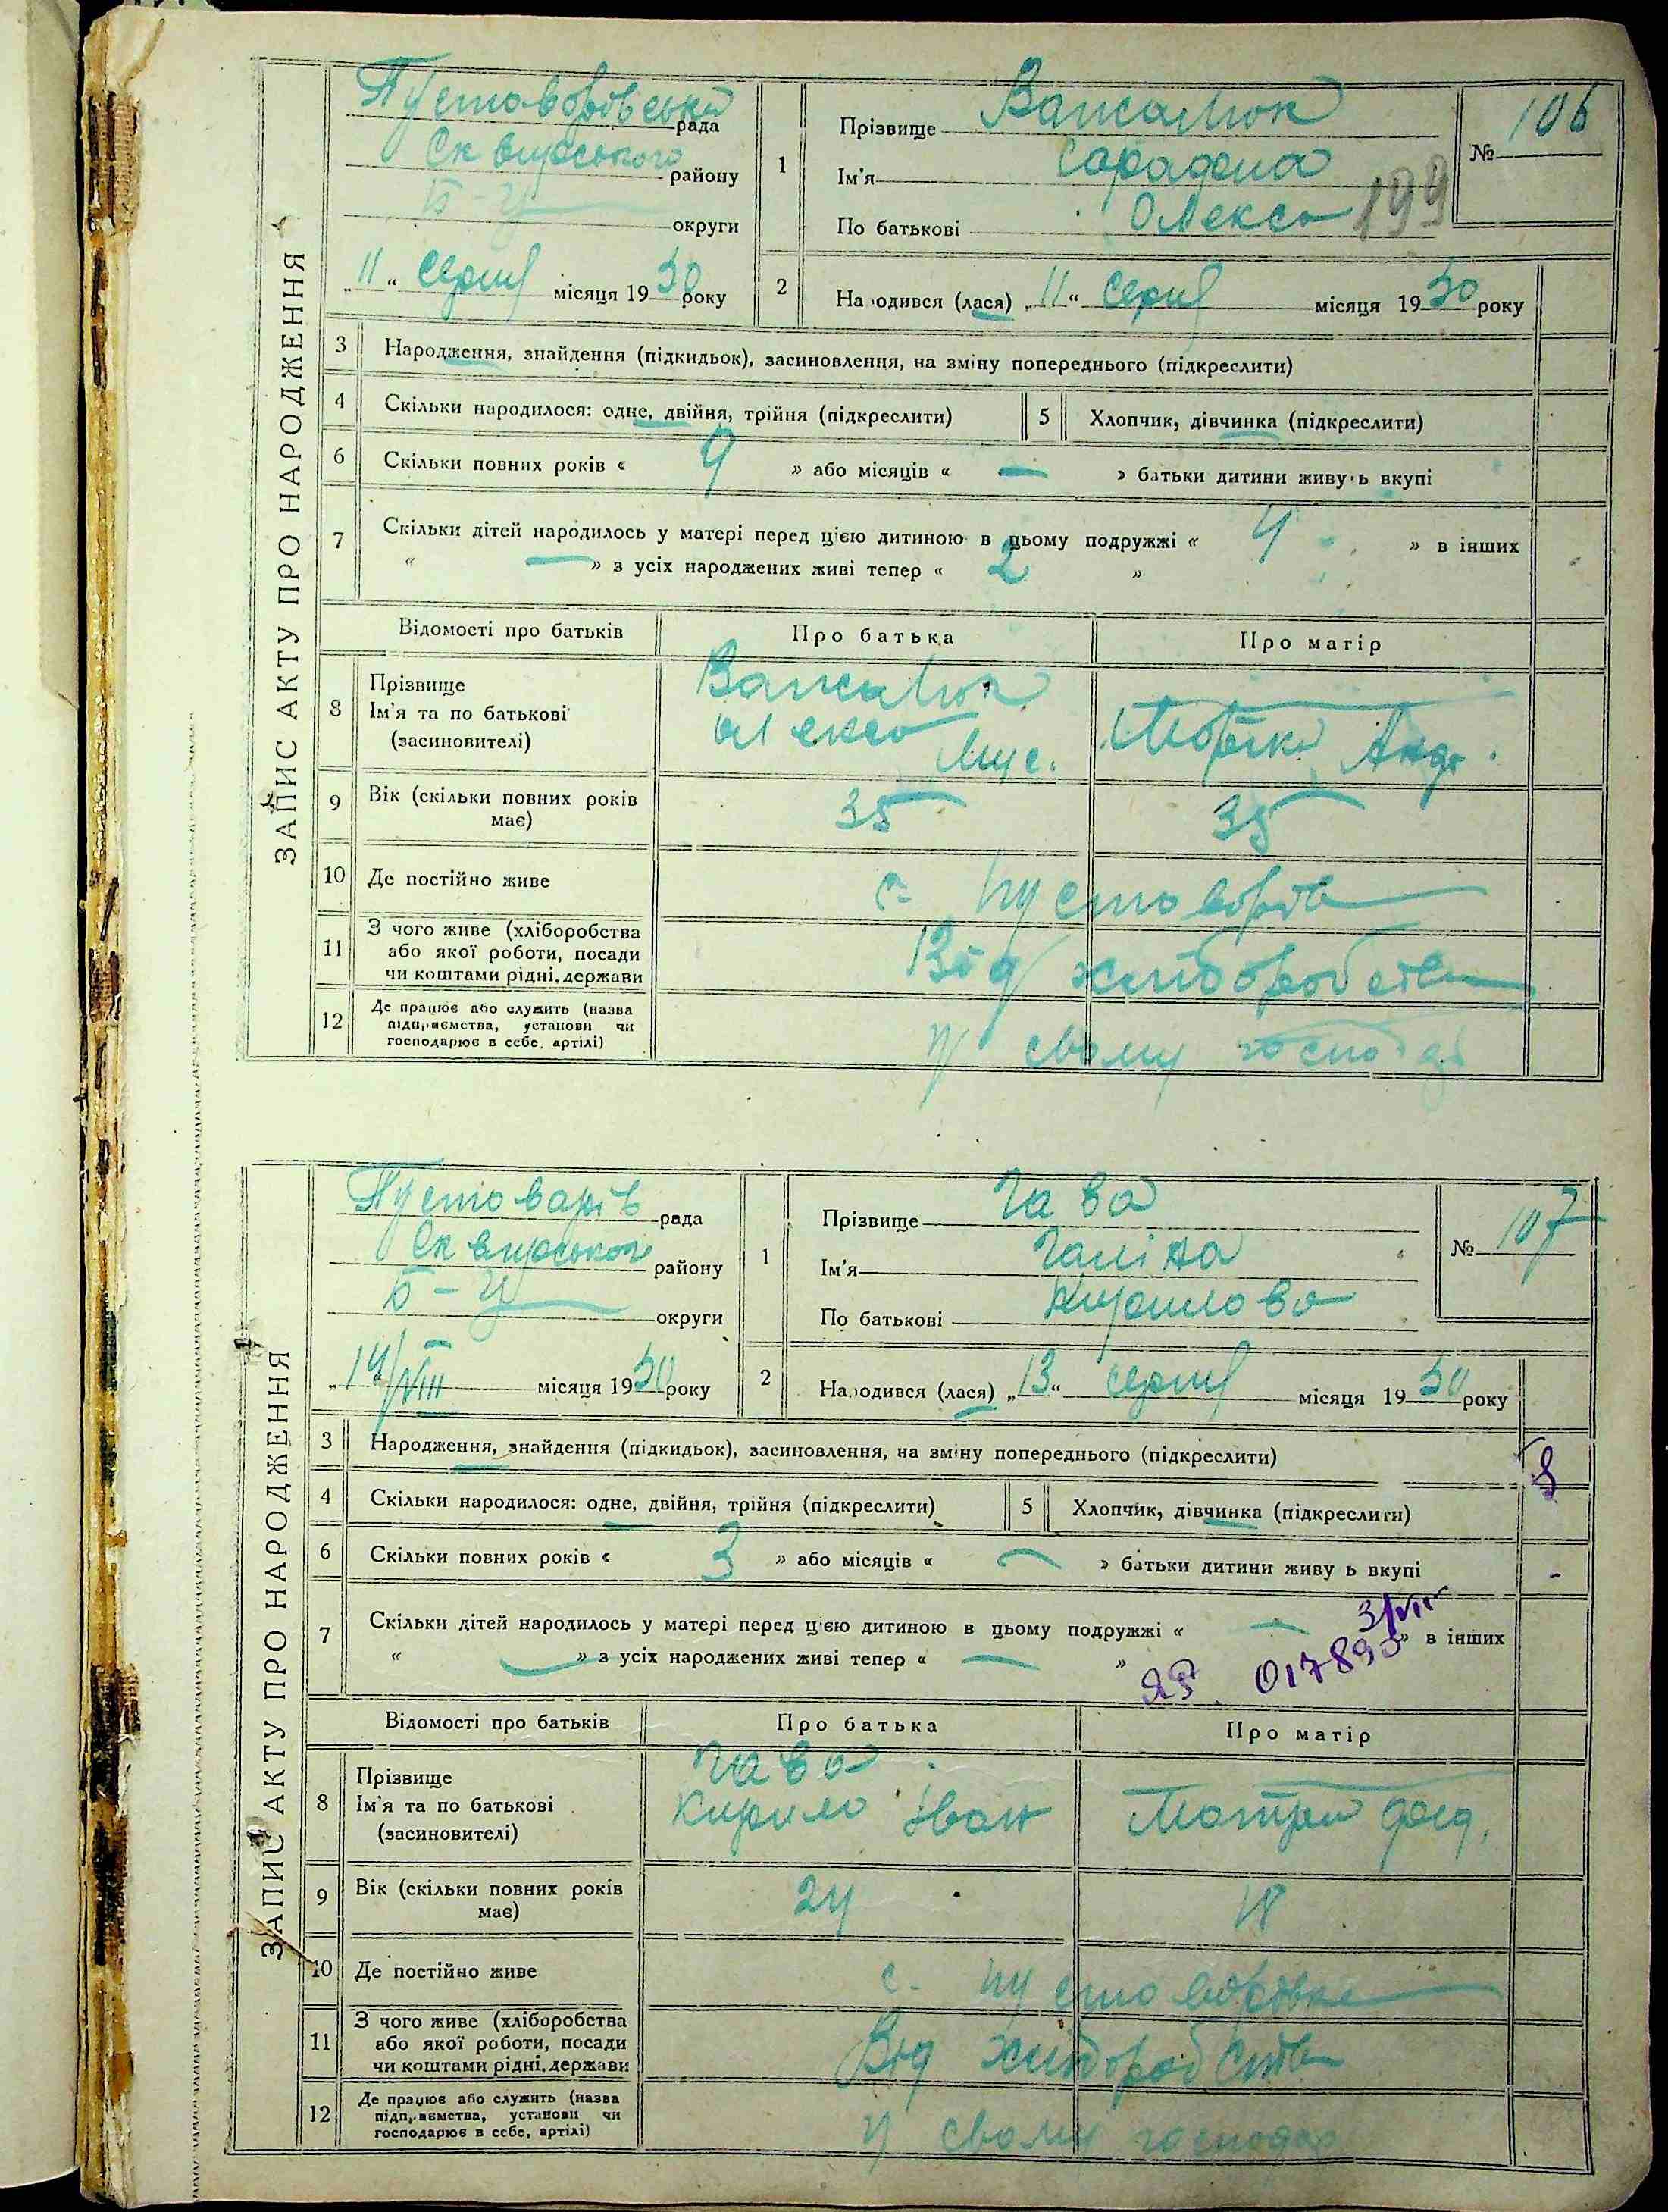 ЗАПИС АКТУ ПРО НАРОДЖЕННЯ
Пустоворівська рада
Сквирського району
Б-Ц округи
„11“ серпня місяця 1930 року
1
Прізвище Важалюк
Ім'я
По батькові Олексо
№ 106
199
2
Народився (лася) „11“ серпня місяця 1930 року
3 Народження, знайдення (підкидьок), засиновлення, на зміну попереднього (підкреслити)
4 Скільки народилося: одне, двійня, трійня (підкреслити) 5 Хлопчик, дівчинка (підкреслити)
6 Скільки повних років « 9 » або місяців « — » батьки дитини живуть вкупі
7 Скільки дітей народилось у матері перед цією дитиною в цьому подружжі « 4 » в інших
« — » з усіх народжених живі тепер « 2 »
Відомості про батьків Про батька Про матір
8 Прізвище
Ім'я та по батькові
(засиновителі)
Важалюк
Олексо
Анд.
9 Вік (скільки повних років має) 35 35
10 Де постійно живе с. Пустоворів
11 З чого живе (хліборобства або якої роботи, посади чи коштами рідні, держави Від хліборобства
12 Де працює або служить (назва підприємства, установи чи господарює в себе, артілі) У свому господ
ЗАПИС АКТУ ПРО НАРОДЖЕННЯ
Пустоварів рада
Сквирського району
Б-Ц округи
„14/VIII місяця 1930 року
1
Прізвище Гава
Ім'я Галіна
По батькові Кирилова
№ 107
2
Народився (лася) „13“ серпня місяця 1930 року
3 Народження, знайдення (підкидьок), засиновлення, на зміну попереднього (підкреслити)
4 Скільки народилося: одне, двійня, трійня (підкреслити) 5 Хлопчик, дівчинка (підкреслити)
6 Скільки повних років « 3 » або місяців « — » батьки дитини живуть вкупі
7 Скільки дітей народилось у матері перед цією дитиною в цьому подружжі « — » в інших
« — » з усіх народжених живі тепер « — »
Відомості про батьків Про батька Про матір
8 Прізвище
Ім'я та по батькові
(засиновителі)
Гава
Кирило Іван
9 Вік (скільки повних років має) 24 18
10 Де постійно живе с. Пустоворівка
11 З чого живе (хліборобства або якої роботи, посади чи коштами рідні, держави Від хліборобства
12 Де працює або служить (назва підприємства, установи чи господарює в себе, артілі) У свому господар